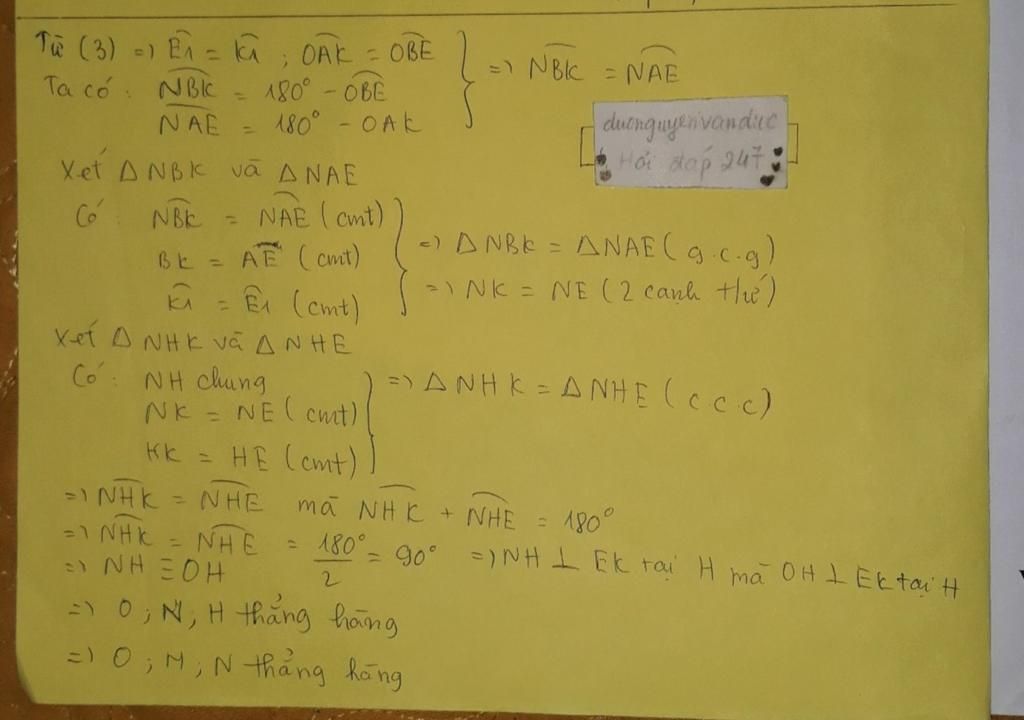 Từ (3) => Ê1 = K̂1 ; OAK = OBE } => NBK = NAE
Ta có : NBK = 180° - OBE
NAE = 180° - OAK
duonguyenvanduc
Hỏi đáp 247
Xét Δ NBK và Δ NAE
Có : NBK = NAE (cmt)
BK = AE (cmt)
K̂1 = Ê1 (cmt)
=> Δ NBK = Δ NAE ( g.c.g )
=> NK = NE ( 2 cạnh tứ )
Xét Δ NHK và Δ NHE
Có : NH chung
NK = NE (cmt)
KK = HE (cmt)
=> Δ NHK = Δ NHE ( c c c )
=> NHK = NHE mà NHK + NHE = 180°
=> NHK = NHE = 180°/2 = 90° => NH ⊥ EK tại H mà OH ⊥ EK tại H
=> NH ≡ OH
=> O ; N ; H thẳng hàng
=> O ; M ; N thẳng hàng